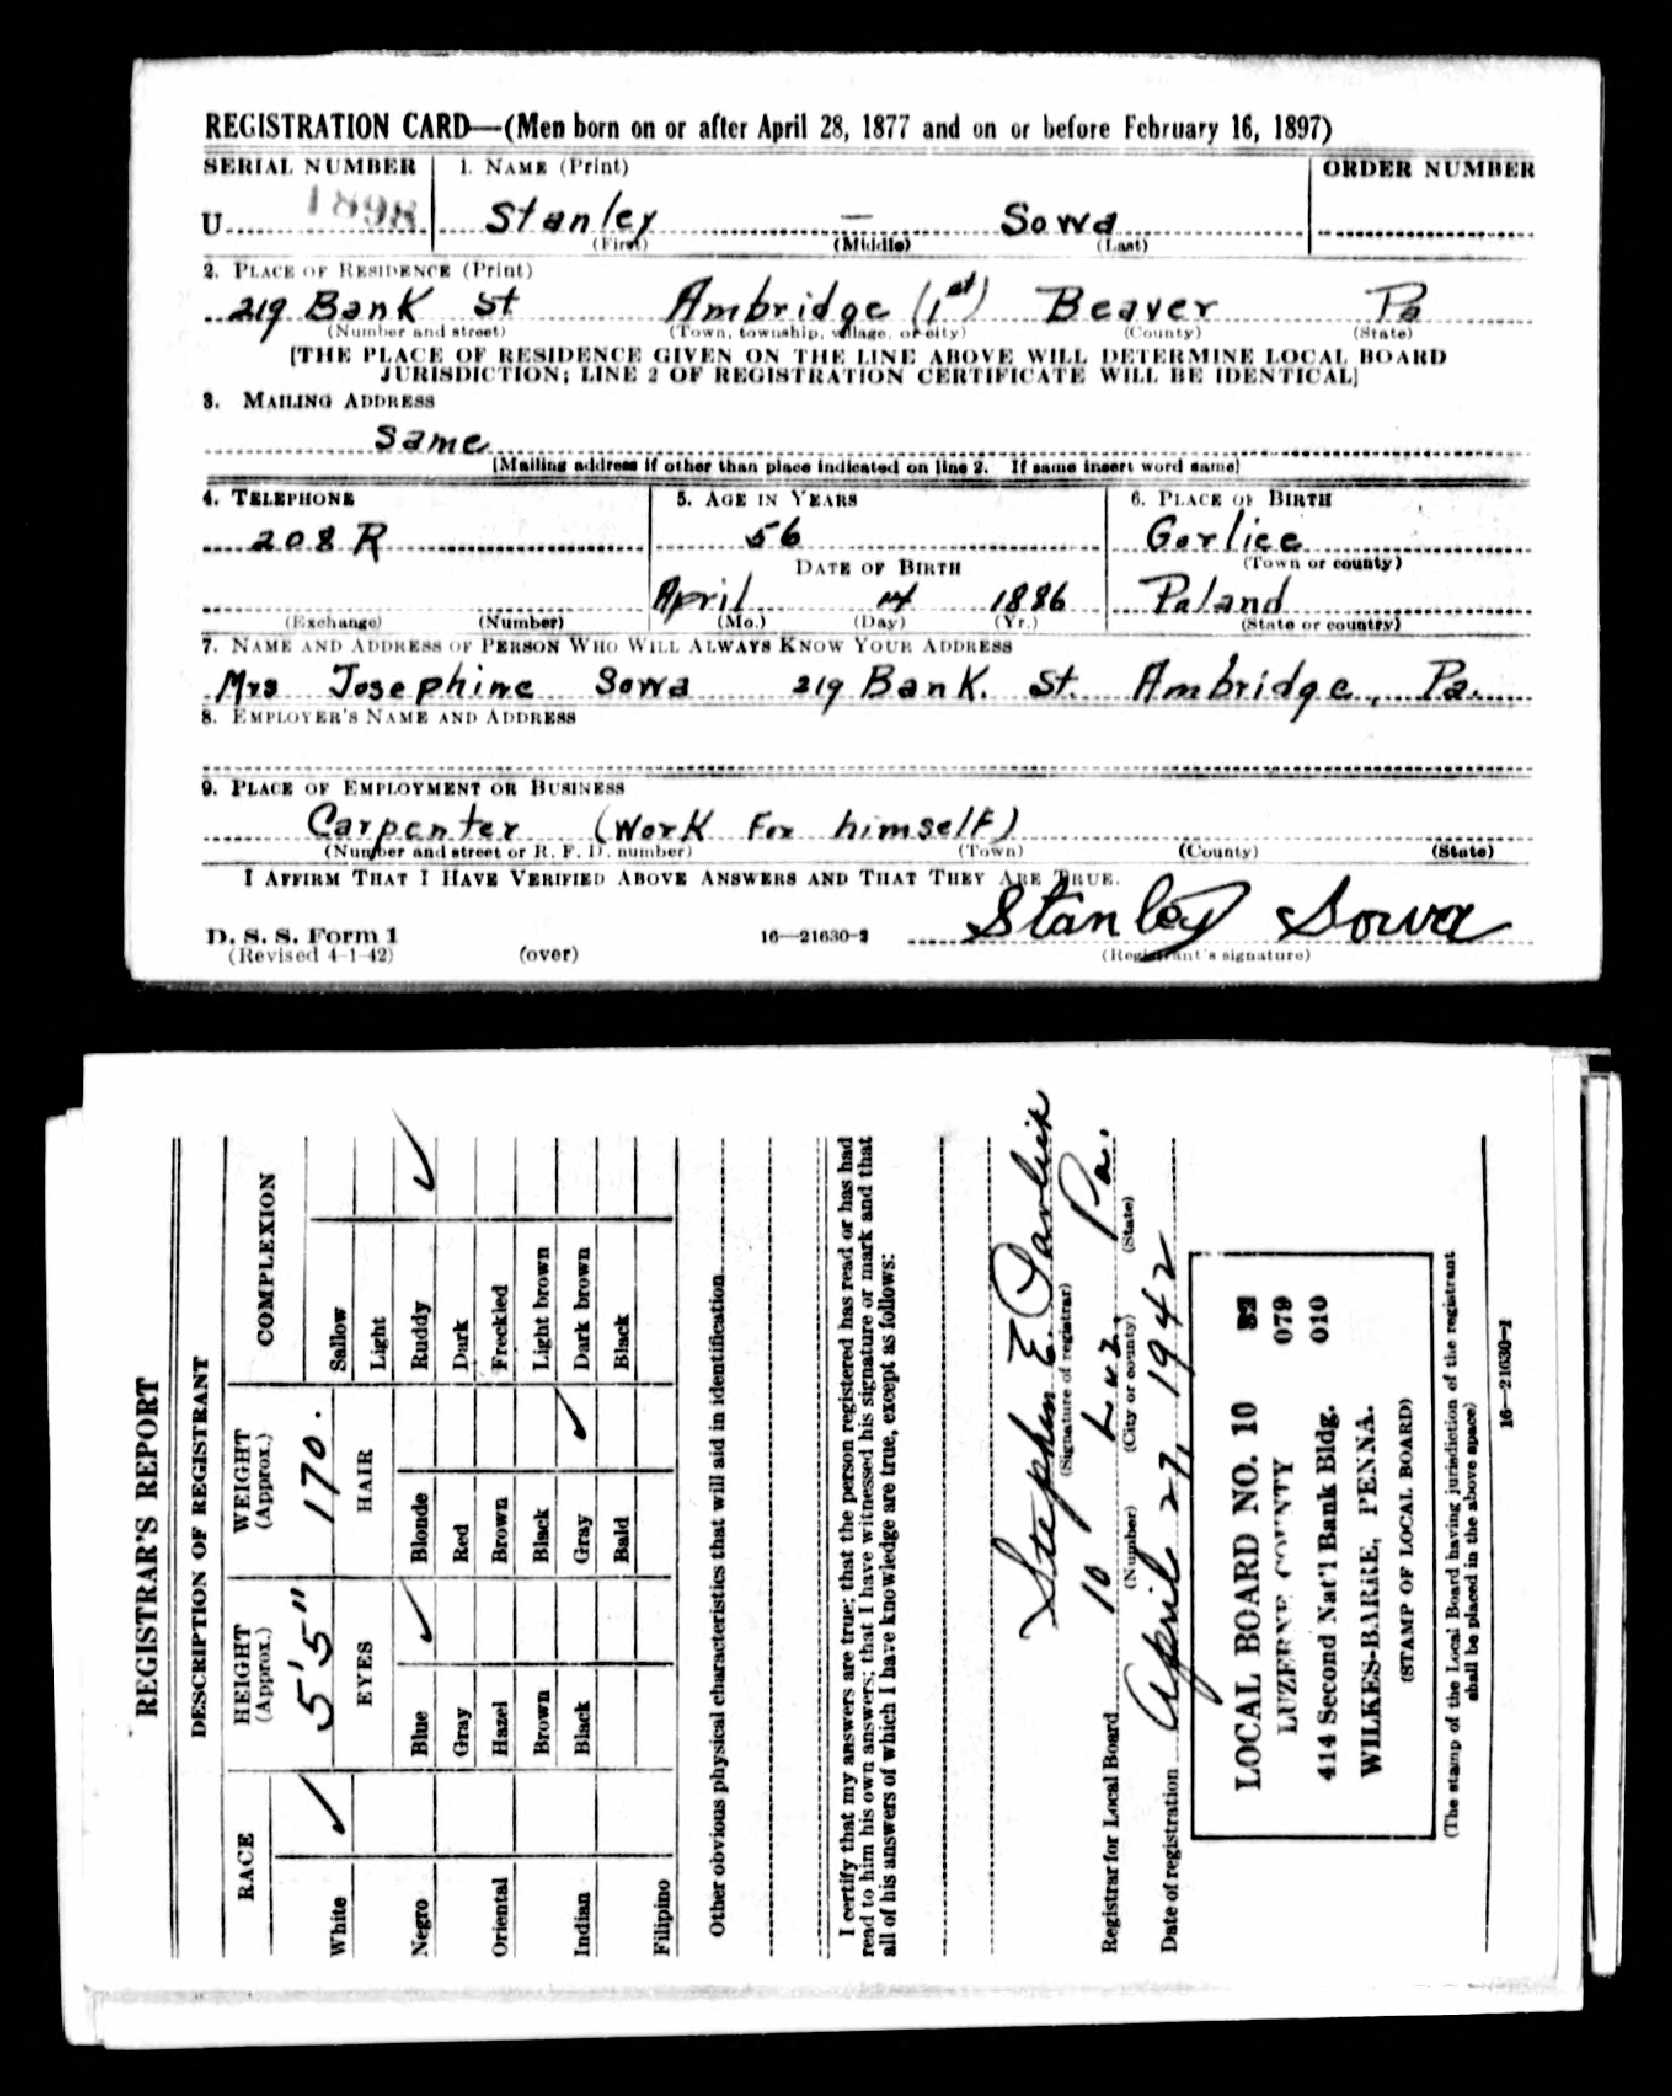 REGISTRATION CARD—(Men born on or after April 28, 1877 and on or before February 16, 1897)
SERIAL NUMBER 1. NAME (Print) ORDER NUMBER
U 1898 Stanley — Sowa
(First) (Middle) (Last)
2. PLACE OF RESIDENCE (Print)
219 Bank St Ambridge (1st) Beaver Pa
(Number and street) (Town, township, village, or city) (County) (State)
[THE PLACE OF RESIDENCE GIVEN ON THE LINE ABOVE WILL DETERMINE LOCAL BOARD
JURISDICTION; LINE 2 OF REGISTRATION CERTIFICATE WILL BE IDENTICAL]
3. MAILING ADDRESS
Same
[Mailing address if other than place indicated on line 2. If same insert word same]
4. TELEPHONE 5. AGE IN YEARS 6. PLACE OF BIRTH
208 R 56 Gorlice
DATE OF BIRTH (Town or county)
April 14 1886 Poland
(Exchange) (Number) (Mo.) (Day) (Yr.) (State or country)
7. NAME AND ADDRESS OF PERSON WHO WILL ALWAYS KNOW YOUR ADDRESS
Mrs Josephine Sowa 219 Bank. St. Ambridge, Pa.
8. EMPLOYER'S NAME AND ADDRESS
9. PLACE OF EMPLOYMENT OR BUSINESS
Carpenter (Work For himself)
(Number and street or R. F. D. number) (Town) (County) (State)
I AFFIRM THAT I HAVE VERIFIED ABOVE ANSWERS AND THAT THEY ARE TRUE.
Stanley Sowa
D. S. S. Form 1 16—21630-2
(Revised 4-1-42) (over) (Registrant's signature)
REGISTRAR'S REPORT
DESCRIPTION OF REGISTRANT
RACE HEIGHT (Approx.) WEIGHT (Approx.) COMPLEXION
5'5" 170.
White Sallow
EYES HAIR Light
Negro Blue Blonde Ruddy
Gray Red Dark
Oriental Hazel Brown Freckled
Brown Black Light brown
Indian Black Gray Dark brown
Bald Black
Filipino
Other obvious physical characteristics that will aid in identification
I certify that my answers are true; that the person registered has read or has had
read to him his own answers; that I have witnessed his signature or mark and that
all of his answers of which I have knowledge are true, except as follows:
Stephen E. Pavlik
(Signature of registrar)
Registrar for Local Board 10 Luz. Pa.
(Number) (City or county) (State)
Date of registration April 27, 1942
LOCAL BOARD NO. 10 32
LUZERNE COUNTY 079
414 Second Nat'l Bank Bldg. 010
WILKES-BARRE, PENNA.
(STAMP OF LOCAL BOARD)
(The stamp of the Local Board having jurisdiction of the registrant
shall be placed in the above space)
16—21630-2